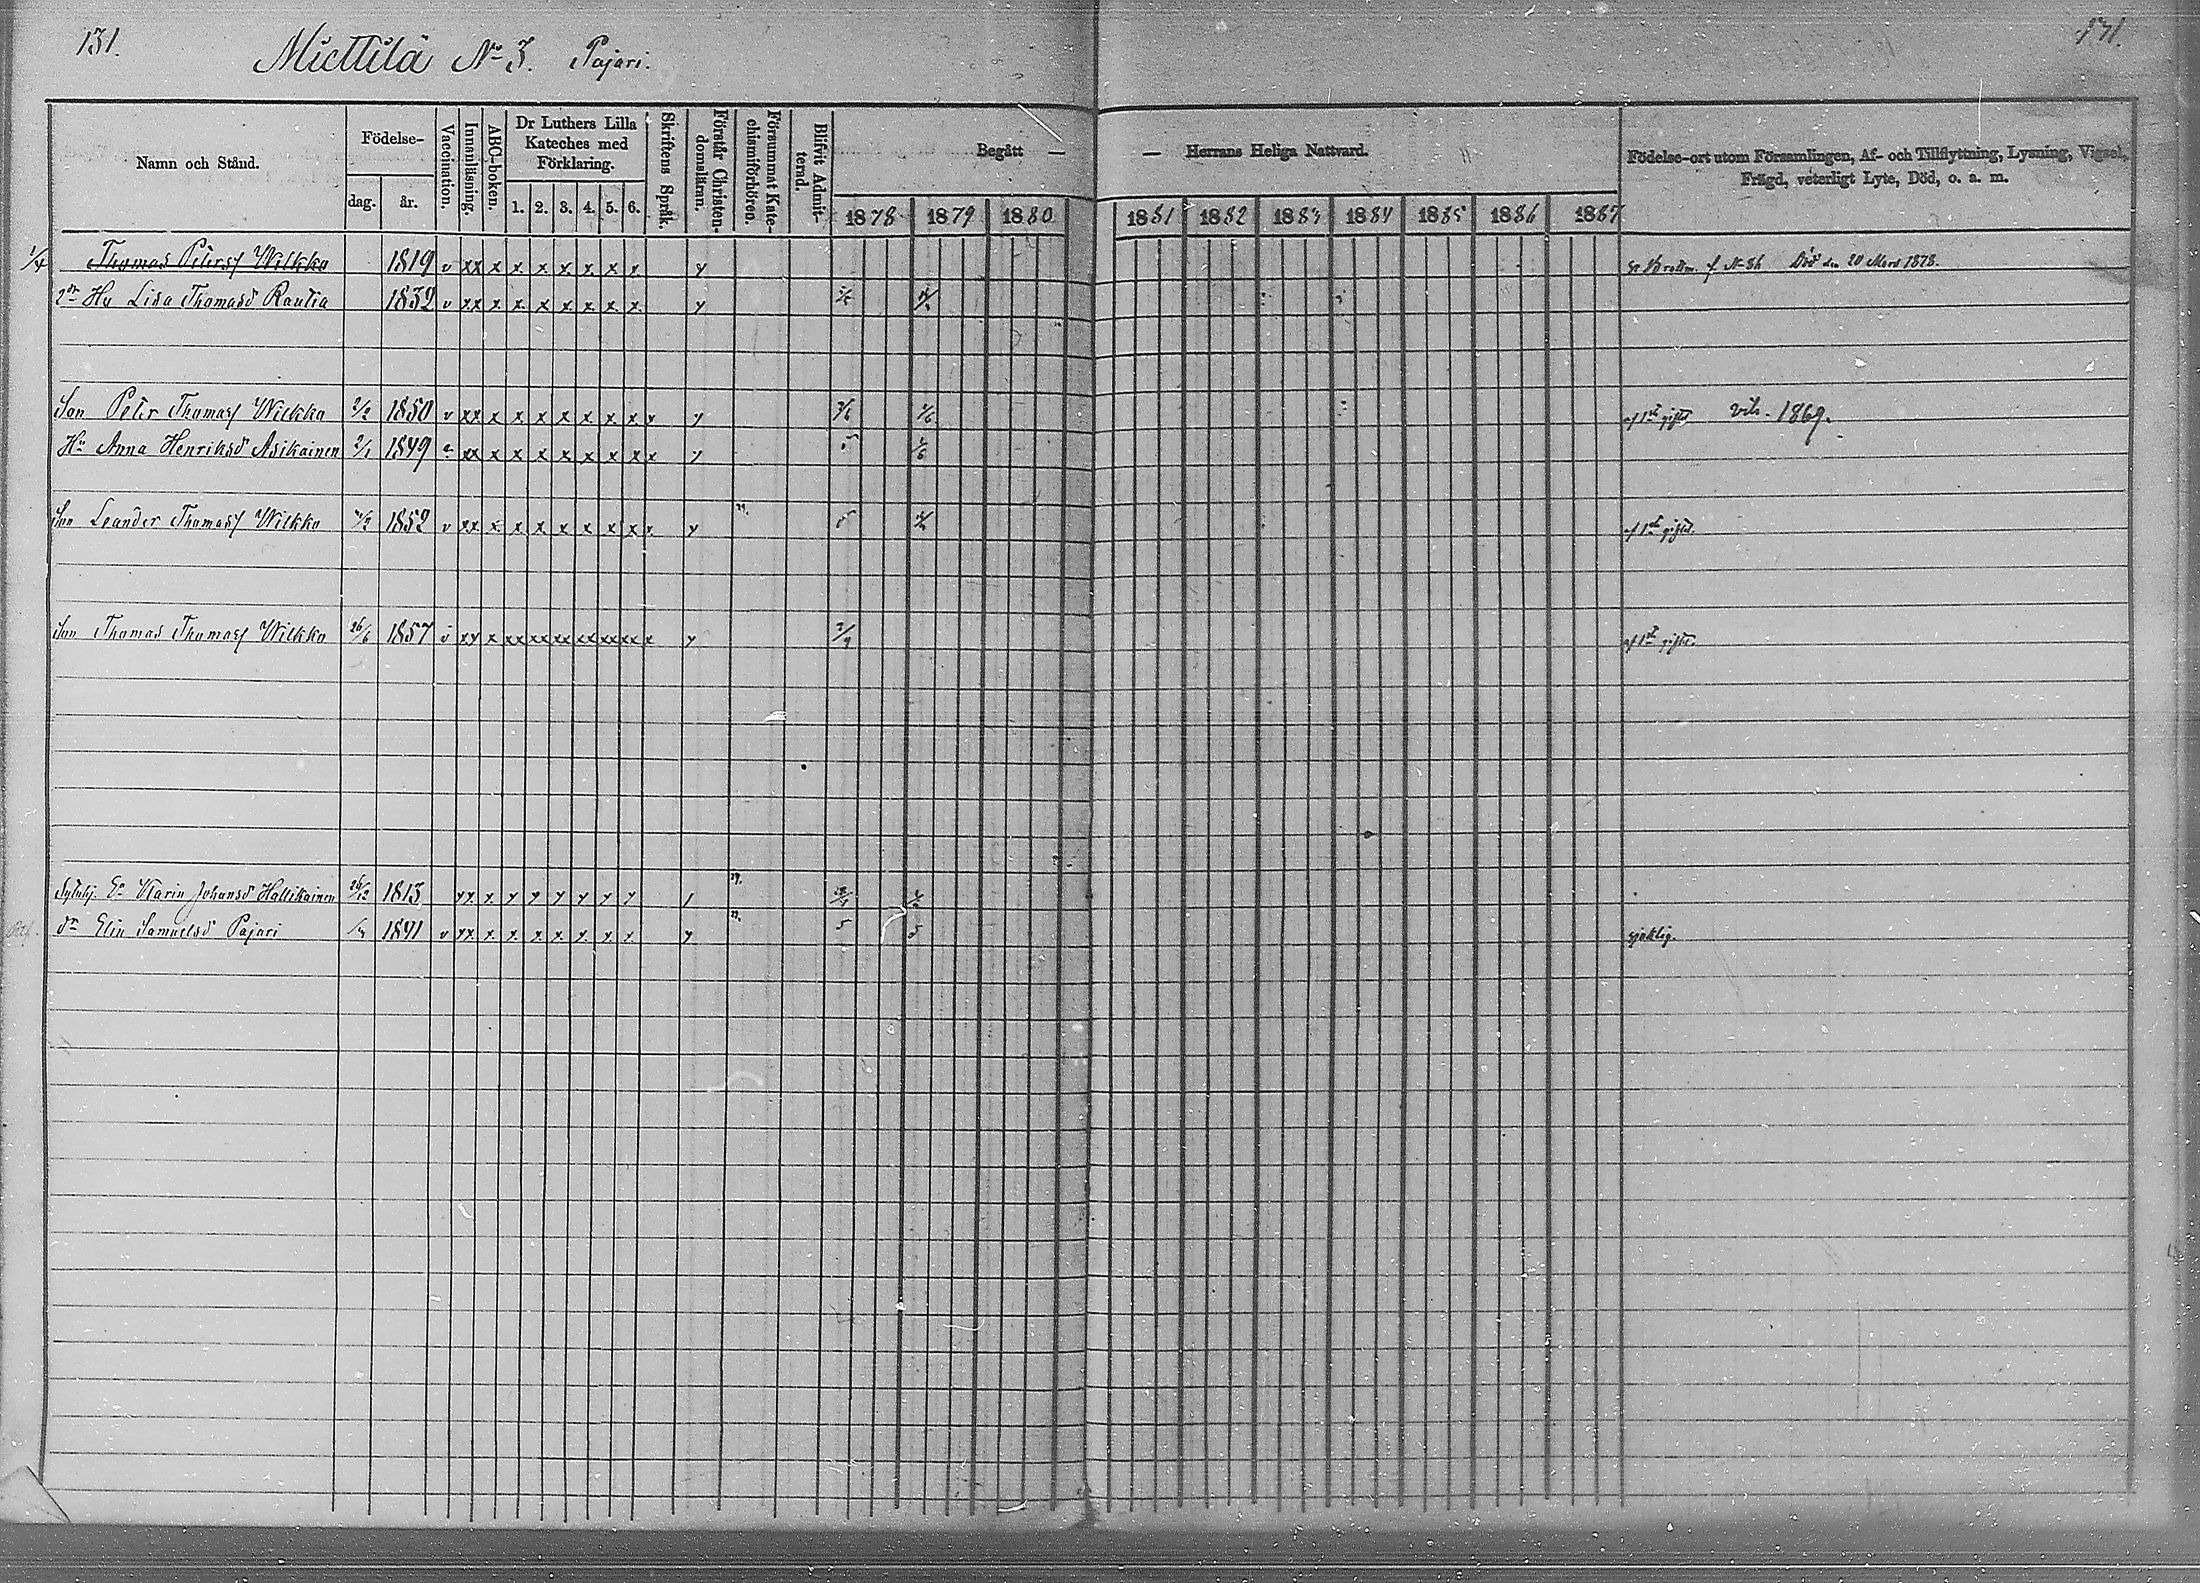 131.
Miettilä No 3. Pajari.
131.
Namn och Stånd.
Födelse-
dag.
år.
Vaccination.
Innanläsning.
ABC-boken.
Dr Luthers Lilla
Kateches med
Förklaring.
1. 2. 3. 4. 5. 6.
Skriftens Språk.
Förstår Christen-
domsläran.
Försummat Kate-
chismiförhören.
Blifvit Admit-
terad.
Begått —
— Herrans Heliga Nattvard.
1878 1879 1880 1881 1882 1883 1884 1885 1886 1887
Födelse-ort utom Församlingen, Af- och Tillflyttning, Lysning, Vigsel,
Frägd, veterligt Lyte, Död, o. a. m.
Thomas Petersf Wilkko 1819 v xx x x x x x x x y Död den 20 Mars 1878.
2dr Hu Lisa Thomasd Rautia 1832 v xx x x x x x x x y
Son Peter Thomasf Wilkko 2/2 1850 v xx x x x x x x x x y af 1sta giftet 1869.
Hu Anna Henriksd Asikainen 2/1 1849 xx x x x x x x x x y
Son Leander Thomasf Wilkko 1852 v xx x x x x x x x x y af 1sta giftet.
Son Thomas Thomasf Wilkko 26/6 1857 v xx x xx xx xx xx xx xx x y af 1sta giftet.
Karin Johansd Hallikainen 26/12 1813
dr Elin Samuelsd Pajari 1841 v xx x x x x x x x y sjuklig.